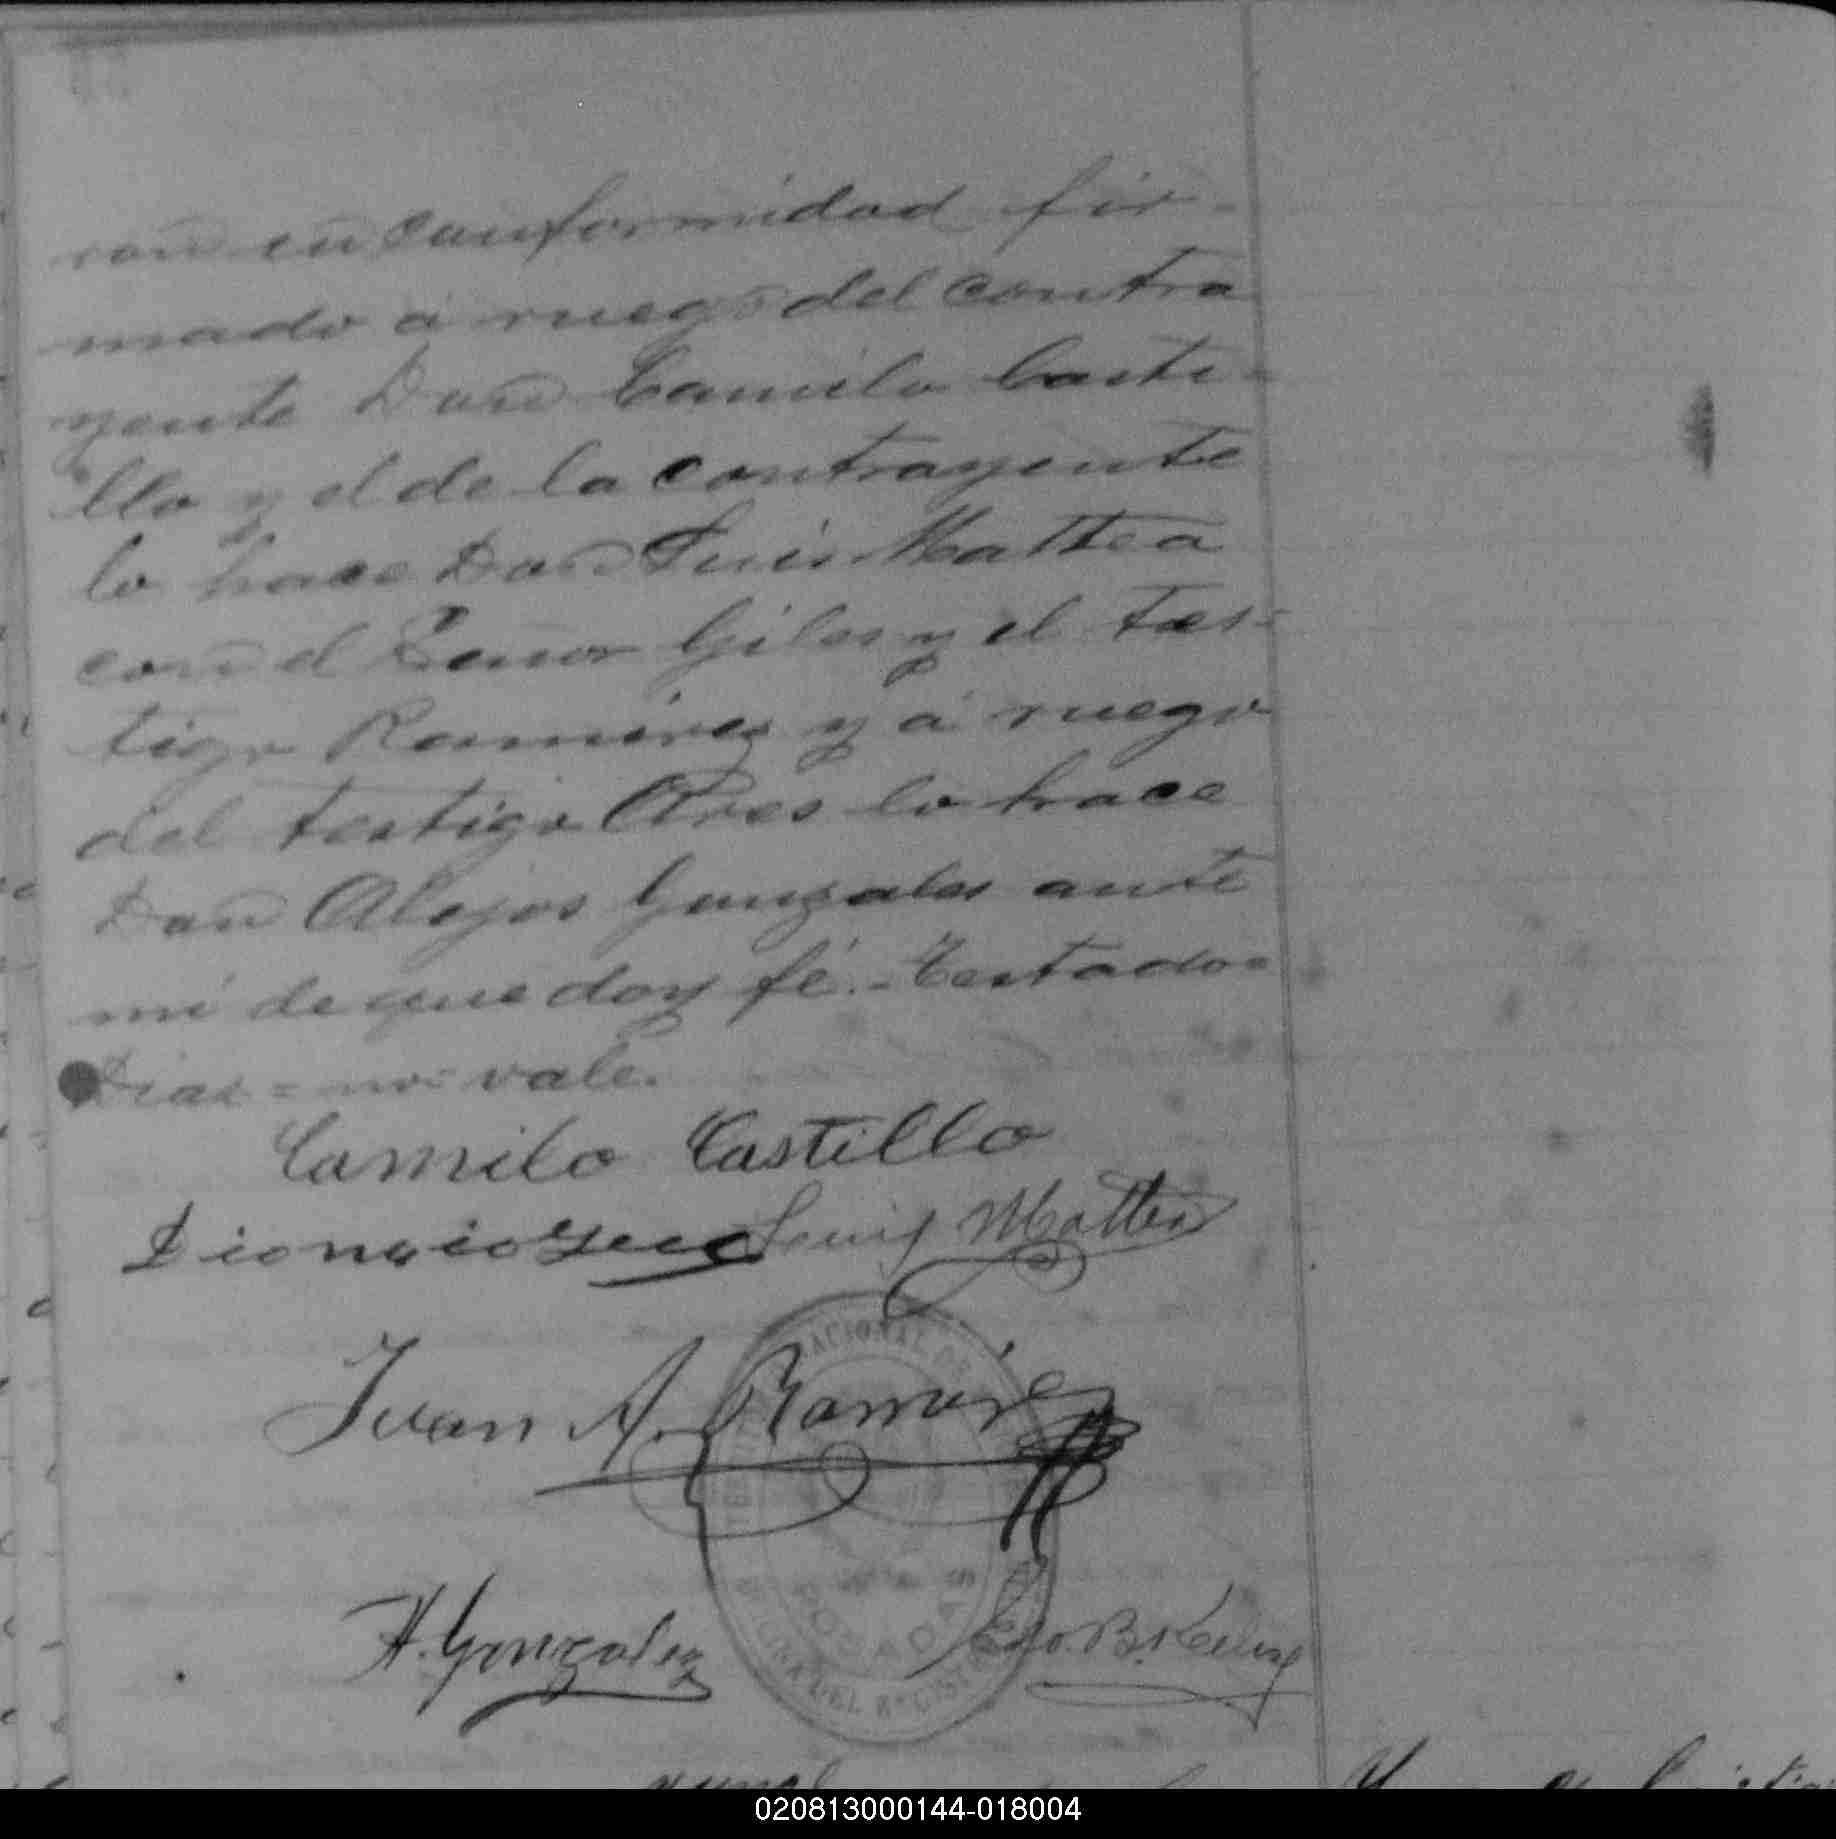 ron en conformidad fir-
mado á ruego del contra
yente Don Camilo Casti-
llo y el de la contrayente
lo hace Don Luis Mattea
con el Señor Giles y el tes-
tigo Ramirez y á ruego
del testigo Ares lo hace
Don Alejos Gonzales ante
mi de que doy fé.- Testado=
Dias = no vale.
Camilo Castillo
Luis Mattea
NACIONAL DE
Juan A. Ramírez
POSADAS
A. Gonzalez
OFICINA DEL Rº CIVIL
020813000144-018004